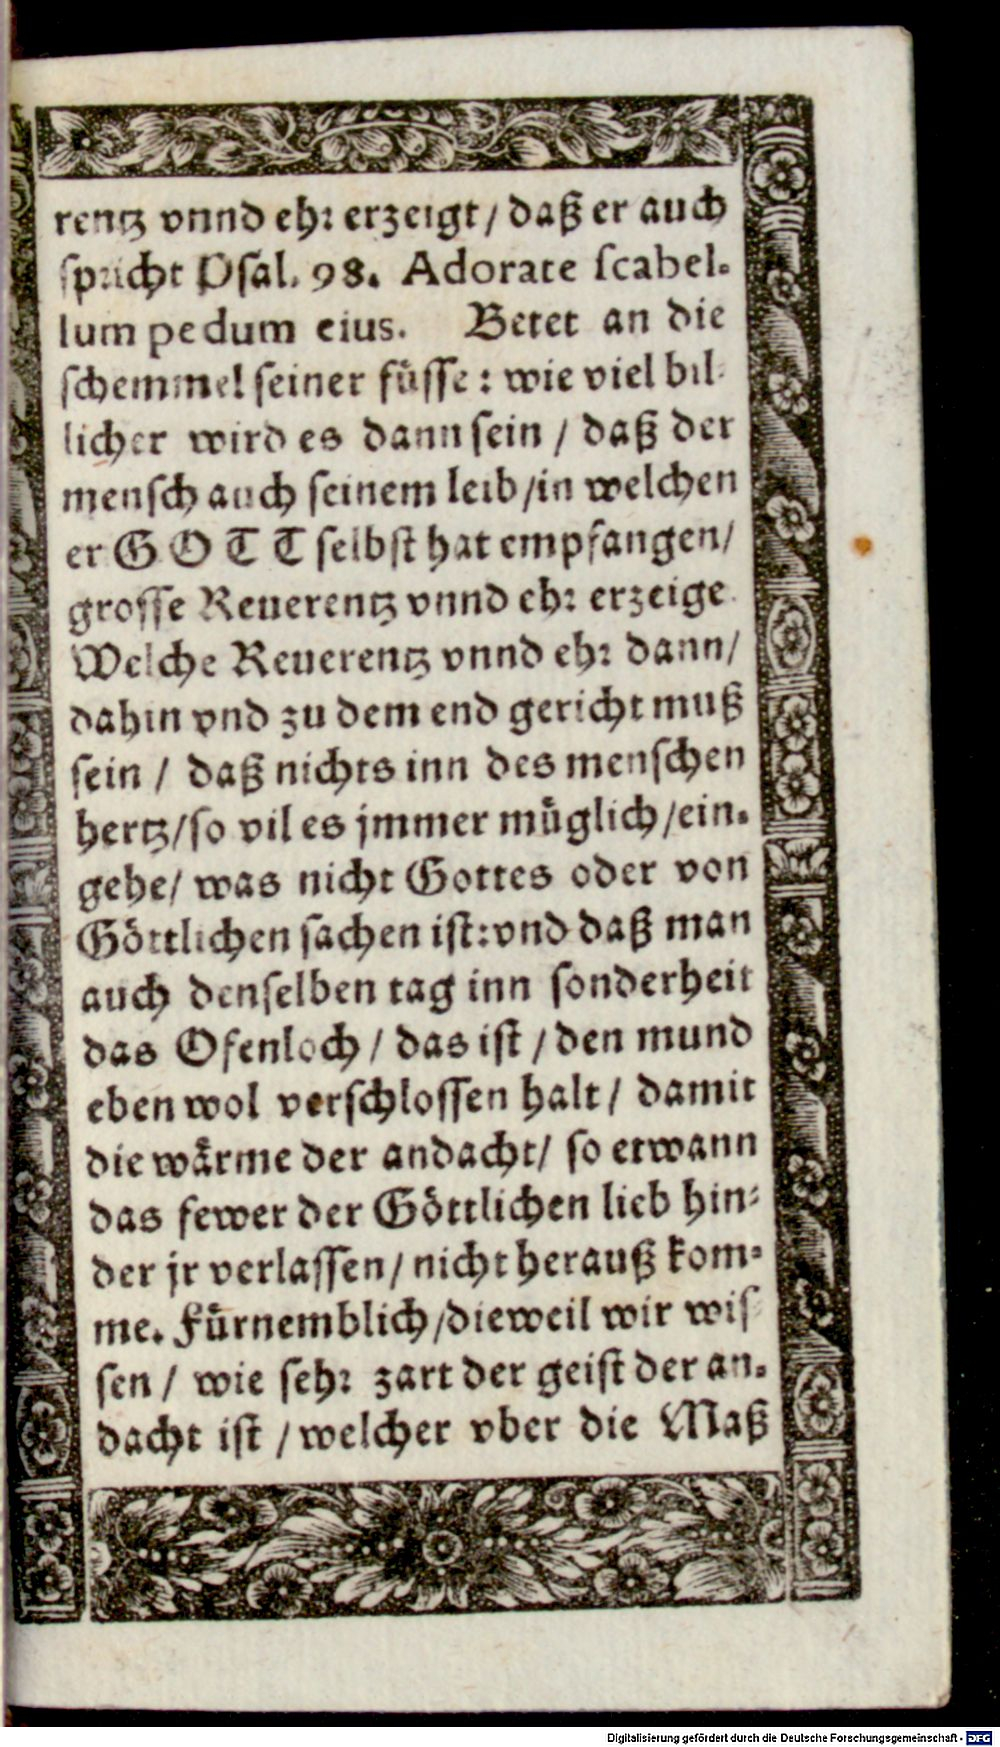 rentz vnnd ehr erzeigt / daß er auch
spricht Psal. 98. Adorate scabel-
lum pedum eius. Betet an die
schemmel seiner füsse : wie viel bil-
licher wird es dann sein / daß der
mensch auch seinem leib / in welchen
er GOTT selbst hat empfangen /
grosse Reuerentz vnnd ehr erzeige.
Welche Reuerentz vnnd ehr dann /
dahin vnd zu dem end gericht muß
sein / daß nichts inn des menschen
hertz / so vil es jmmer müglich / ein-
gehe / was nicht Gottes oder von
Göttlichen sachen ist: vnd daß man
auch denselben tag inn sonderheit
das Ofenloch / das ist / den mund
eben wol verschlossen halt / damit
die wärme der andacht / so etwann
das fewer der Göttlichen lieb hin-
der jr verlassen / nicht herauß kom-
me. Fürnemblich / dieweil wir wis-
sen / wie sehr zart der geist der an-
dacht ist / welcher vber die Maß
Digitalisierung gefördert durch die Deutsche Forschungsgemeinschaft - DFG